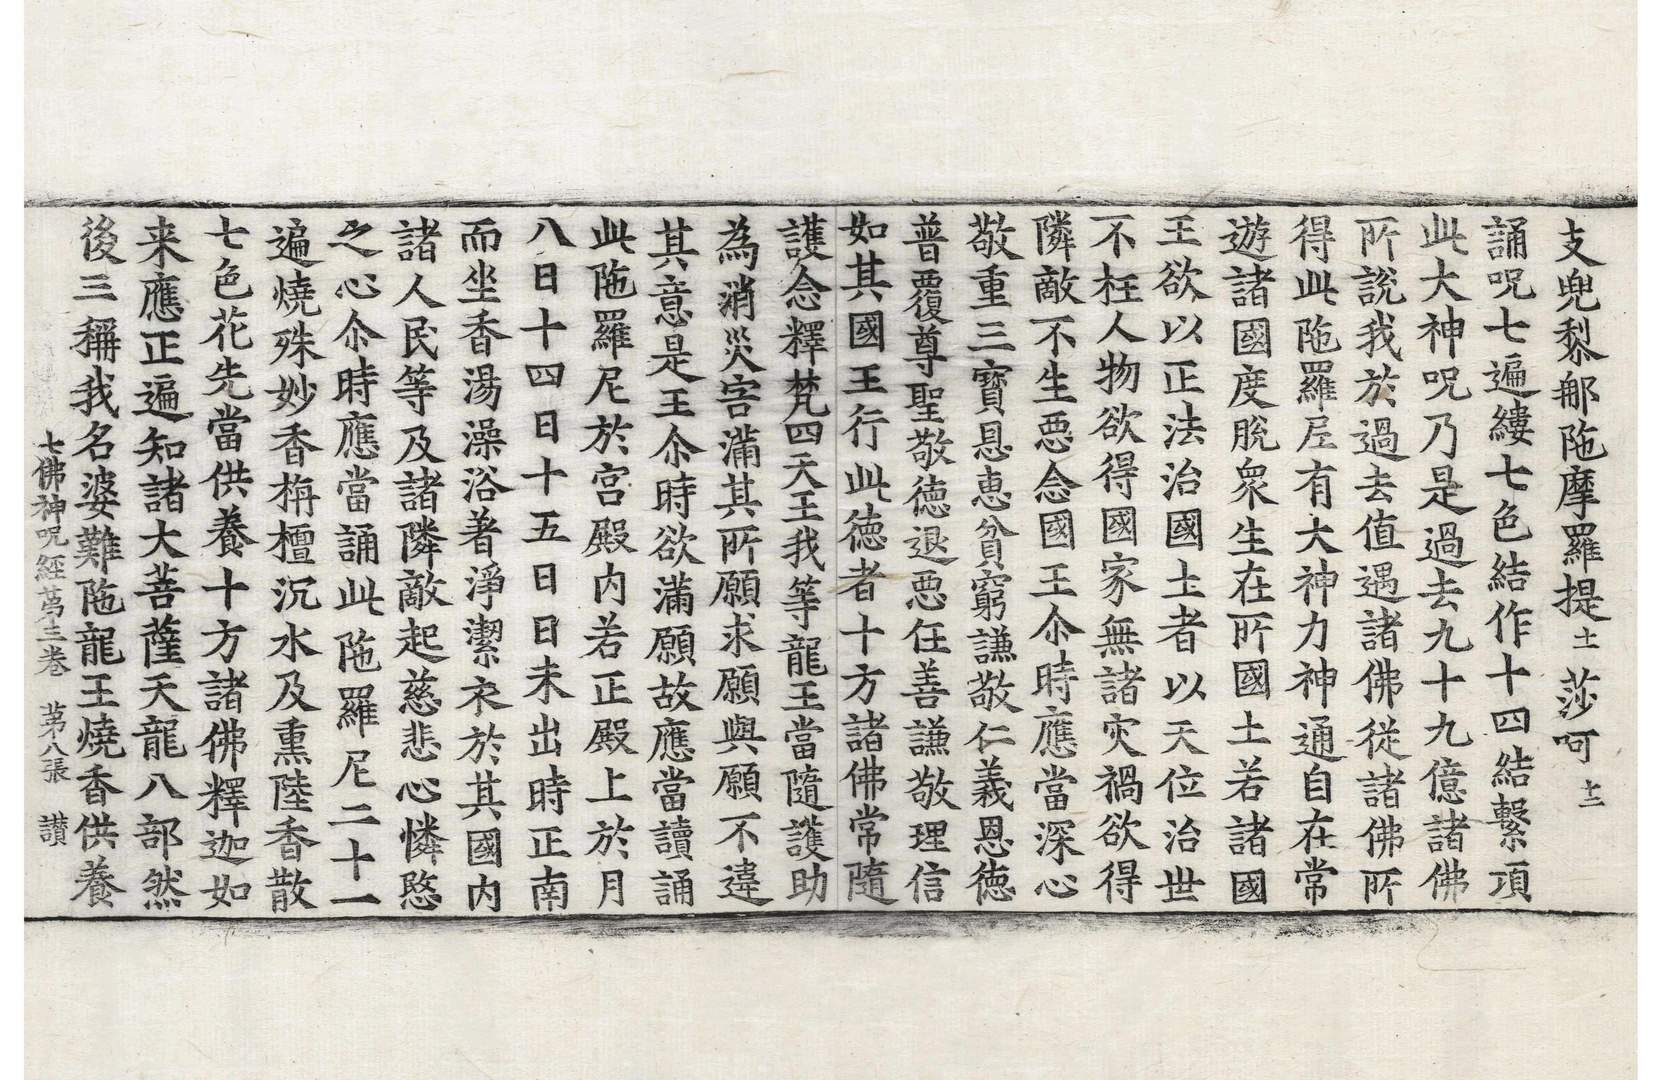 支兜黎那陁摩羅提十一莎呵十二
誦呪七遍縷七色結作十四結繫項
此大神呪乃是過去九十九億諸佛
所說我於過去值遇諸佛從諸佛所
得此陁羅尼有大神力神通自在常
遊諸國度脫衆生在所國土若諸國
王欲以正法治國土者以天位治世
不枉人物欲得國家無諸灾禍欲得
隣敵不生惡念國王尒時應當深心
敬重三寶恩惠貧窮謙敬仁義恩德
普覆尊聖敬德退惡任善謙敬理信
如其國王行此德者十方諸佛常隨
護念釋梵四天王我等龍王當隨護助
為消災害滿其所願求願與願不違
其意是王尒時欲滿願故應當讀誦
此陁羅尼於宮殿內若正殿上於月
八日十四日十五日日未出時正南
而坐香湯澡浴著淨潔衣於其國內
諸人民等及諸隣敵起慈悲心憐愍
之心尒時應當誦此陁羅尼二十一
遍燒殊妙香栴檀沉水及熏陸香散
七色花先當供養十方諸佛釋迦如
来應正遍知諸大菩薩天龍八部然
後三稱我名婆難陁龍王燒香供養
七佛神呪經苐三卷　苐八張　讃